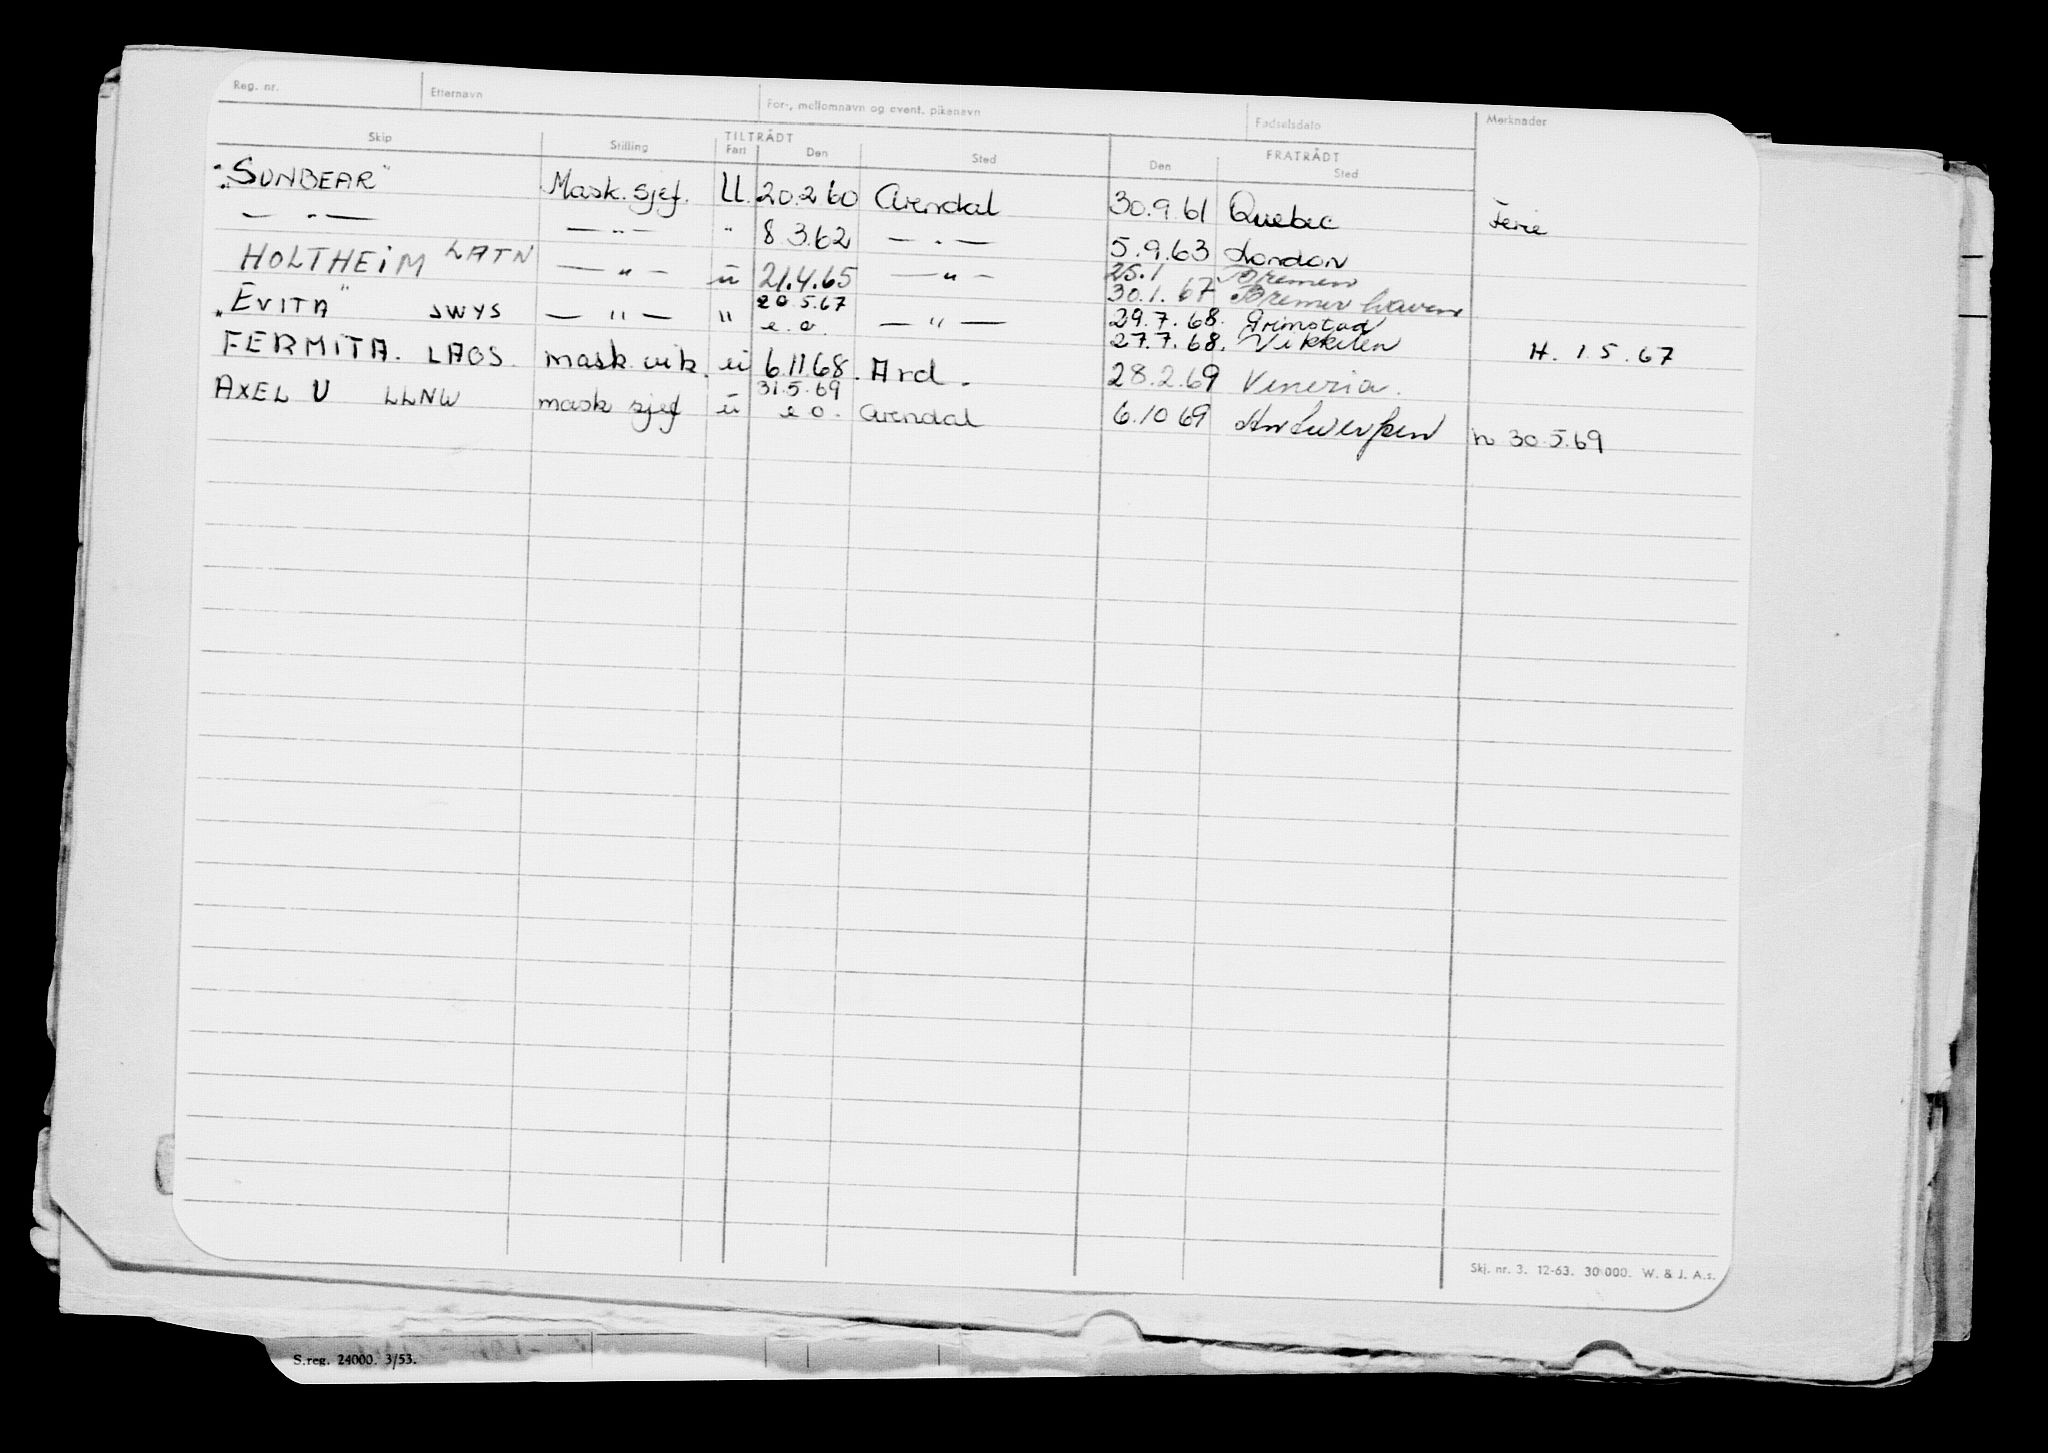 Reg. nr. Etternavn For-, mellomnavn og event. pikenavn Fødselsdato Merknader
Skip Stilling TILTRÅDT FRATRÅDT
Fart Den Sted Den Sted
"SUNBEAR" Mask. sjef. U. 20.2.60 Arendal 30.9.61 Quebec Ferie
— " — — " — " 8.3.62 — " — 5.9.63 London
HOLTHEIM LATN — " — u 21.4.65 — " — 25.1 Bremen
30.1.67 Bremerhaven
"EVITA" JWYS — " — " 20.5.67 e.o. — " — 29.7.68. Grimstad
27.7.68. Vikkilen H. 1.5.67
FERMITA. LAOS. mask. vik. u 6.11.68. Ard. 28.2.69 Venezia.
AXEL U LLNW mask sjef u 31.5.69 e o. Arendal 6.10 69 Antwerpen h 30.5.69
Skj. nr. 3. 12-63. 30 000. W. & J. A.s.
S.reg. 24000. 3/53.